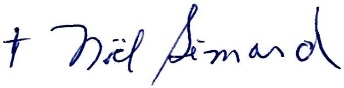 † Noël Simard